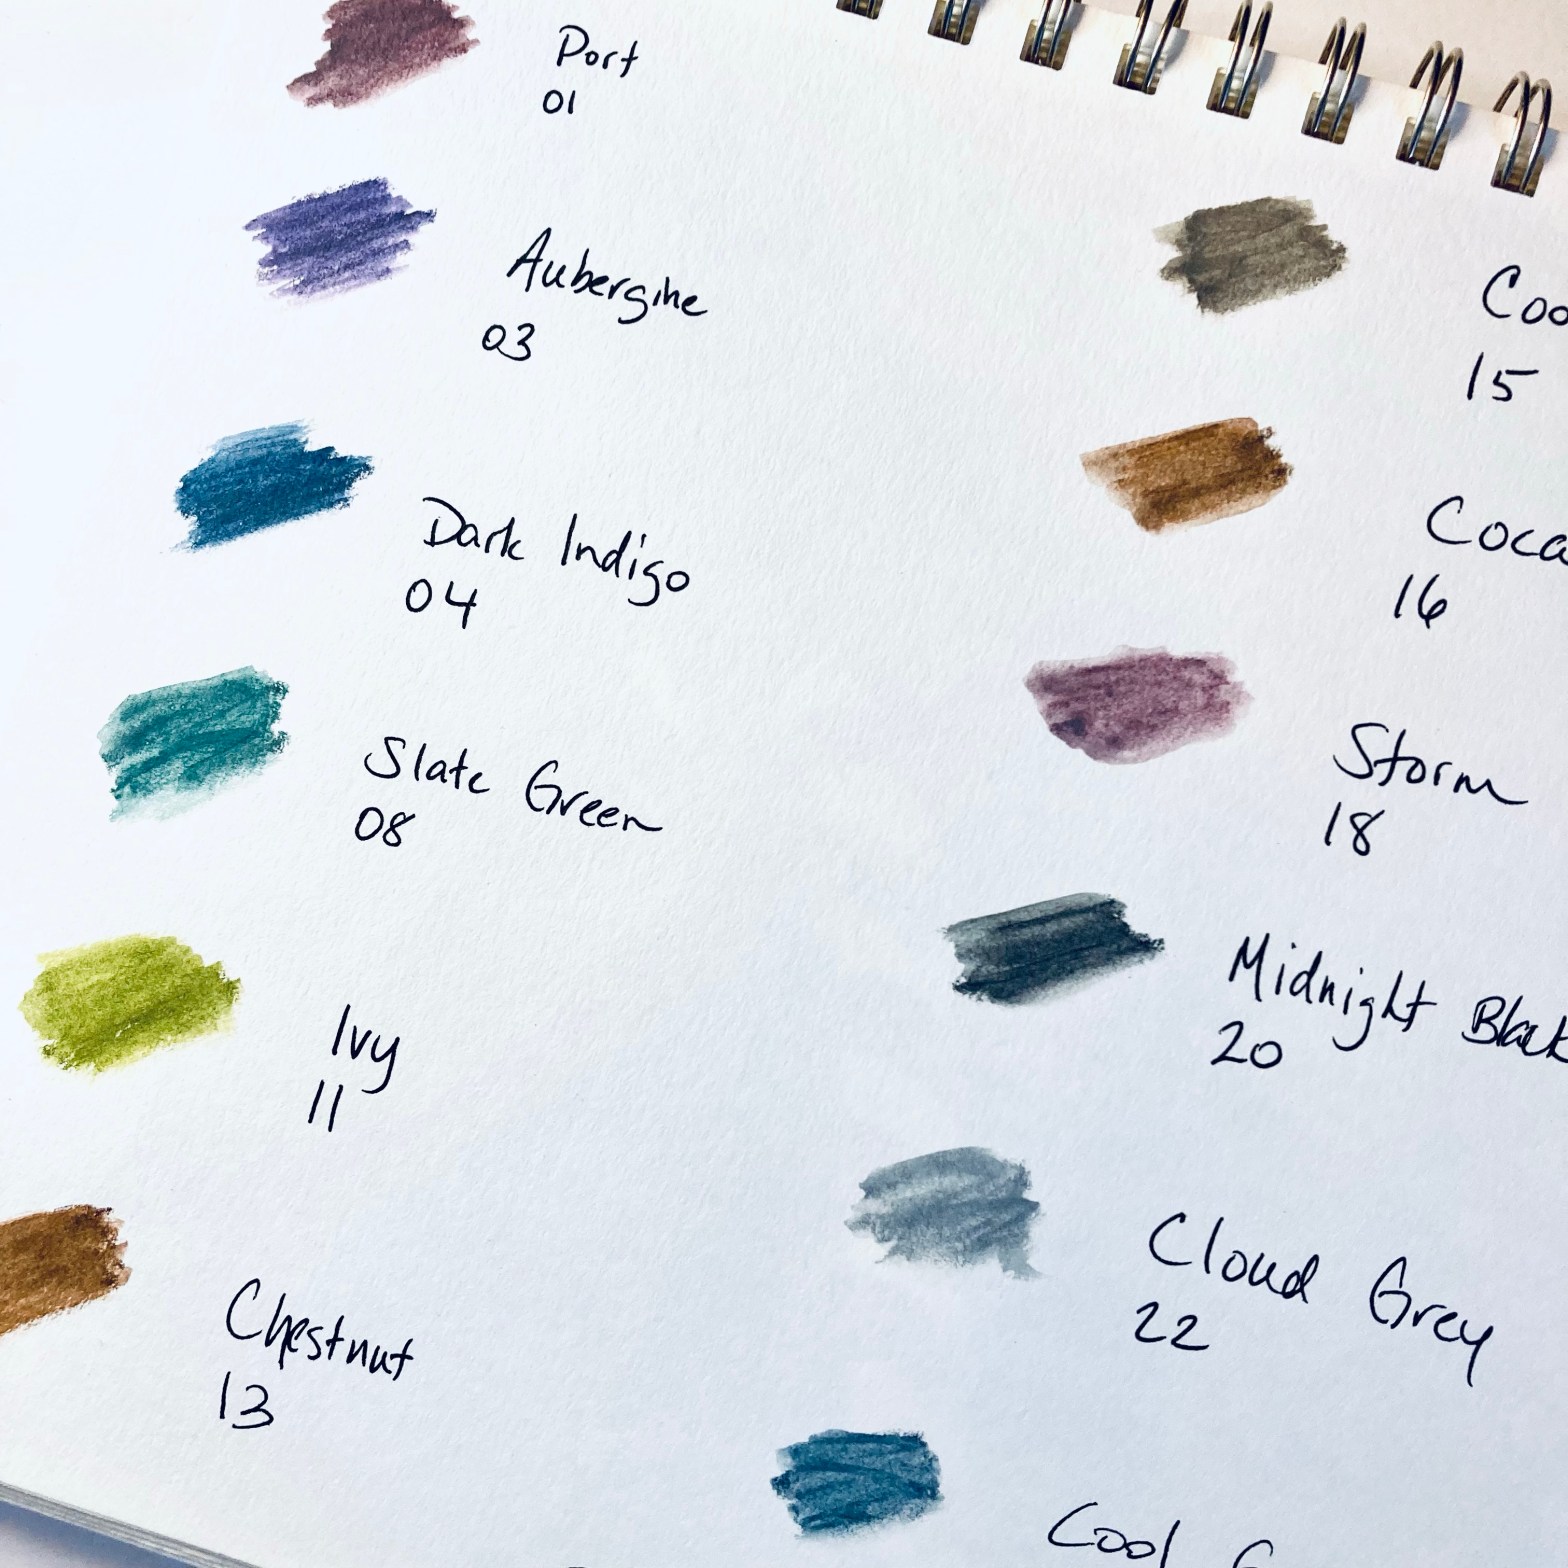 Port
01
Aubergine
03
Dark Indigo
04
Slate Green
08
Ivy
11
Chestnut
13
15
16
Storm
18
Midnight Black
20
Cloud Grey
22
Cool